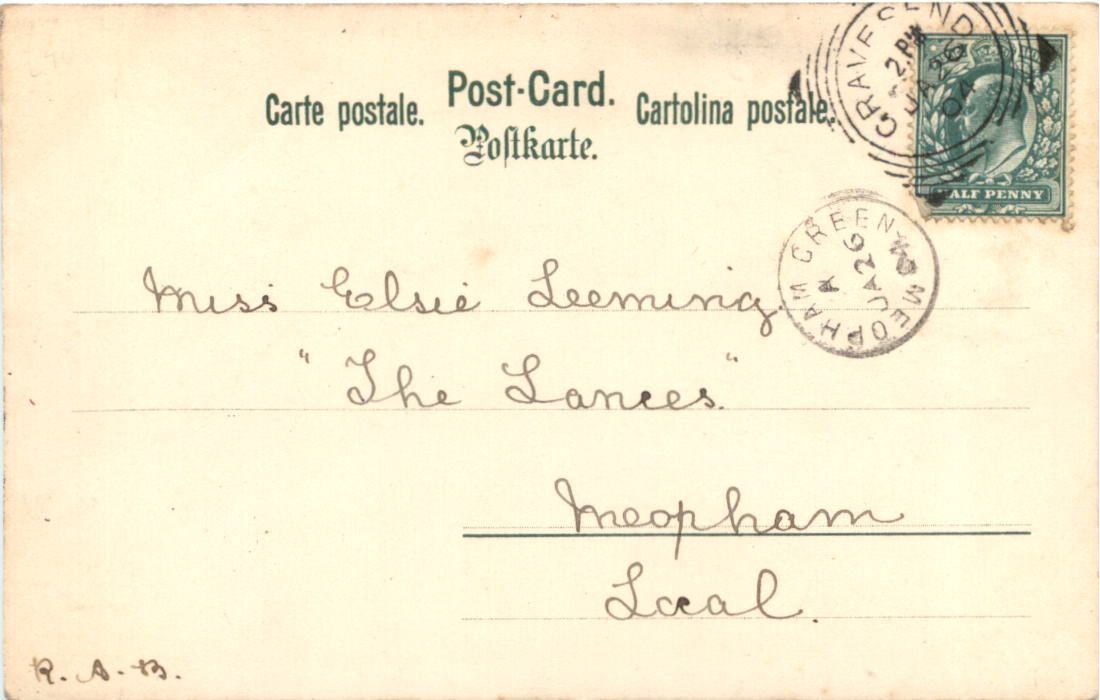 Carte postale. Post-Card. Cartolina postale.
Postkarte.
GRAVESEND
2.PM
JA 26
04
HALF PENNY
MEOPHAM GREEN
A
JA 26
04
Miss Elsie Leeming
"The Lances"
Meopham
Local.
R. A. B.